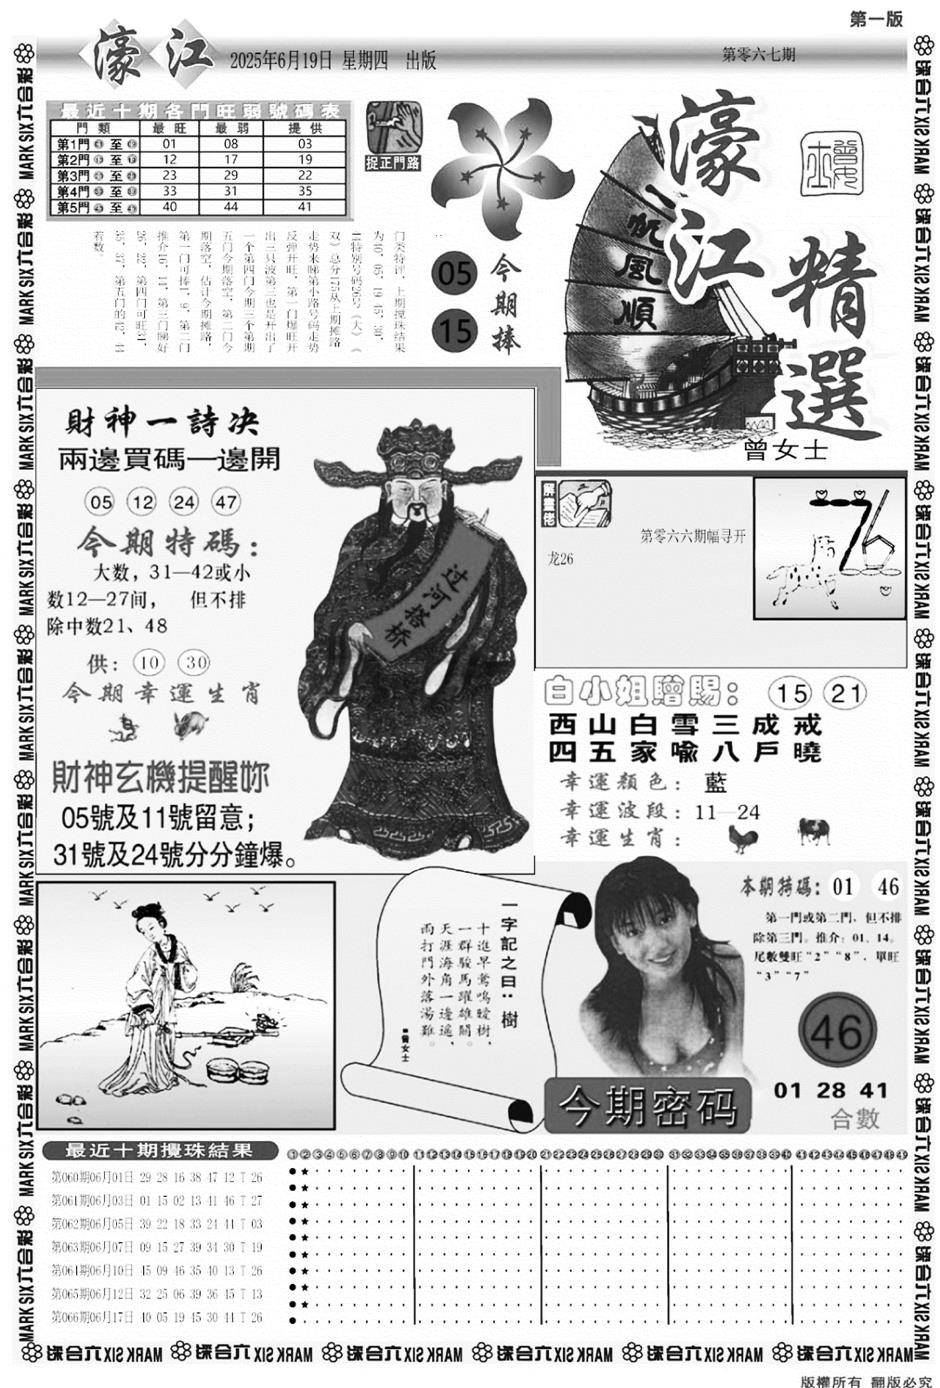 第一版
濠江
2025年6月19日 星期四 出版
第零六七期
最近十期各門旺弱號碼表
門類 最旺 最弱 提供
第1門 至 01 08 03
第2門 至 12 17 19
第3門 至 23 29 22
第4門 至 33 31 35
第5門 至 40 44 41
捉正門路
门类特评，上期搅珠结果
走势来睇第小路号码走势
反弹开旺，第一门爆旺开
出三只波第三也是开出了
一个第四门今期三个第期
五门今期落空，第二门今
期落空，估计今期摊路，
第一门可捧1，9，第二门
着数。
05
15
今期捧
一帆風順
濠江
精選
曾女士
財神一詩决
兩邊買碼一邊開
05 12 24 47
今期特碼：
大数，31—42或小
数12—27间， 但不排
除中数21、48
供：10 30
今期幸運生肖
財神玄機提醒妳
05號及11號留意；
31號及24號分分鐘爆。
过河搭桥
解畫佬
第零六六期幅寻开
龙26
76
白小姐贈賜：15 21
西山白雪三成戒
四五家喻八戶曉
幸運顏色：藍
幸運波段：11—24
幸運生肖：
一字記之曰：樹
十進早鶯鳴暖樹，
一群駿馬躍雄關。
天涯海角一邊遙，
雨打門外落湯雞。
曾女士
本期特碼：01 46
第一門或第二門，但不排
除第三門。推介：01、14。
尾數雙旺“2”“8”，單旺
“3”“7”
46
今期密码
01 28 41
合數
最近十期攪珠結果
①②③④⑤⑥⑦⑧⑨⑩⑪⑫⑬⑭⑮⑯⑰⑱⑲⑳㉑㉒㉓㉔㉕㉖㉗㉘㉙㉚㉛㉜㉝㉞㉟㊱㊲㊳㊴㊵㊶㊷㊸㊹㊺㊻㊼㊽㊾
第060期06月01日 29 28 16 38 47 12 T 26
第061期06月03日 01 15 02 13 41 46 T 27
第062期06月05日 39 22 18 33 24 44 T 03
第063期06月07日 09 15 27 39 34 30 T 19
第064期06月10日 45 09 46 35 40 13 T 26
第065期06月12日 32 25 06 39 36 45 T 13
第066期06月17日 40 05 19 45 30 44 T 26
MARK SIX 六合彩
版權所有 翻版必究